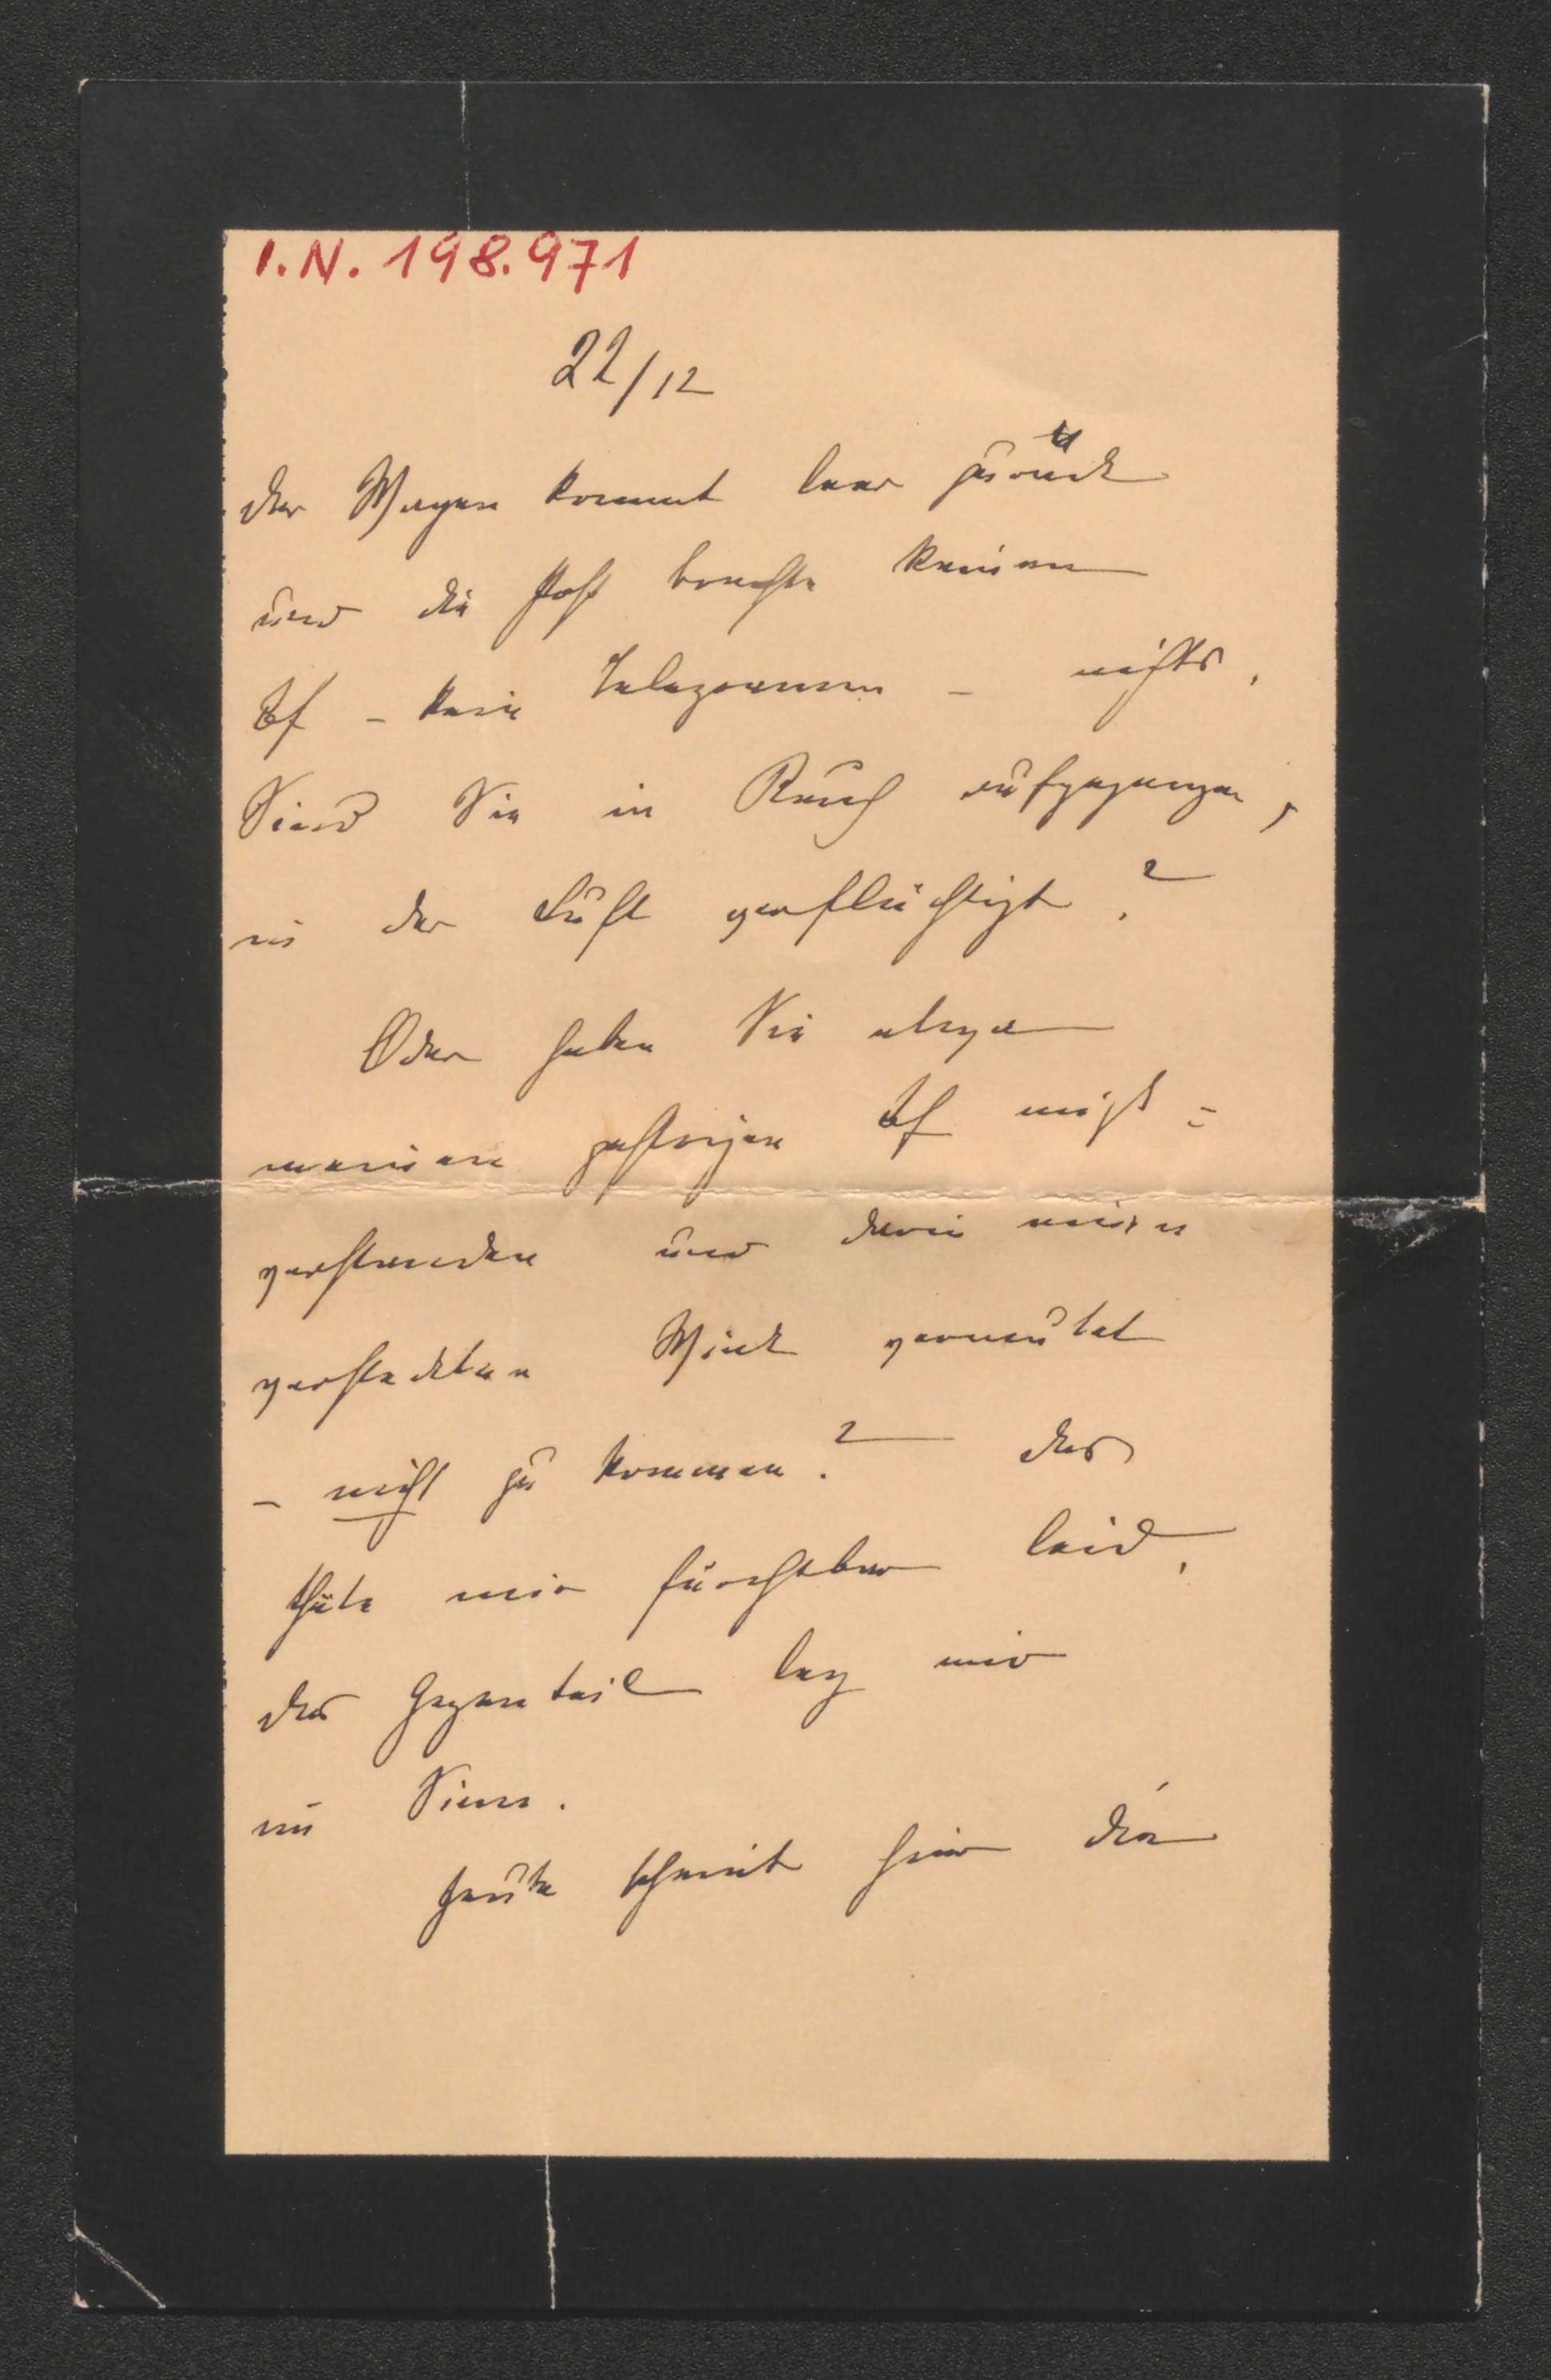 I.N. 198.971
22/12
Der Wagen kommt leer zurück
und die Post brachte keinen
Bf – kein Telegramm – nichts.
Sind Sie in Rauch aufgegangen,
in der Luft verflüchtigt?
Oder haben Sie etwa
meinen gestrigen Bf miß=
verstanden und darin einen
versteckten Wink vermutet
– nicht zu kommen? Das
thäte mir furchtbar leid,
das Gegenteil lag mir
im Sinn.
Heute scheint hier die